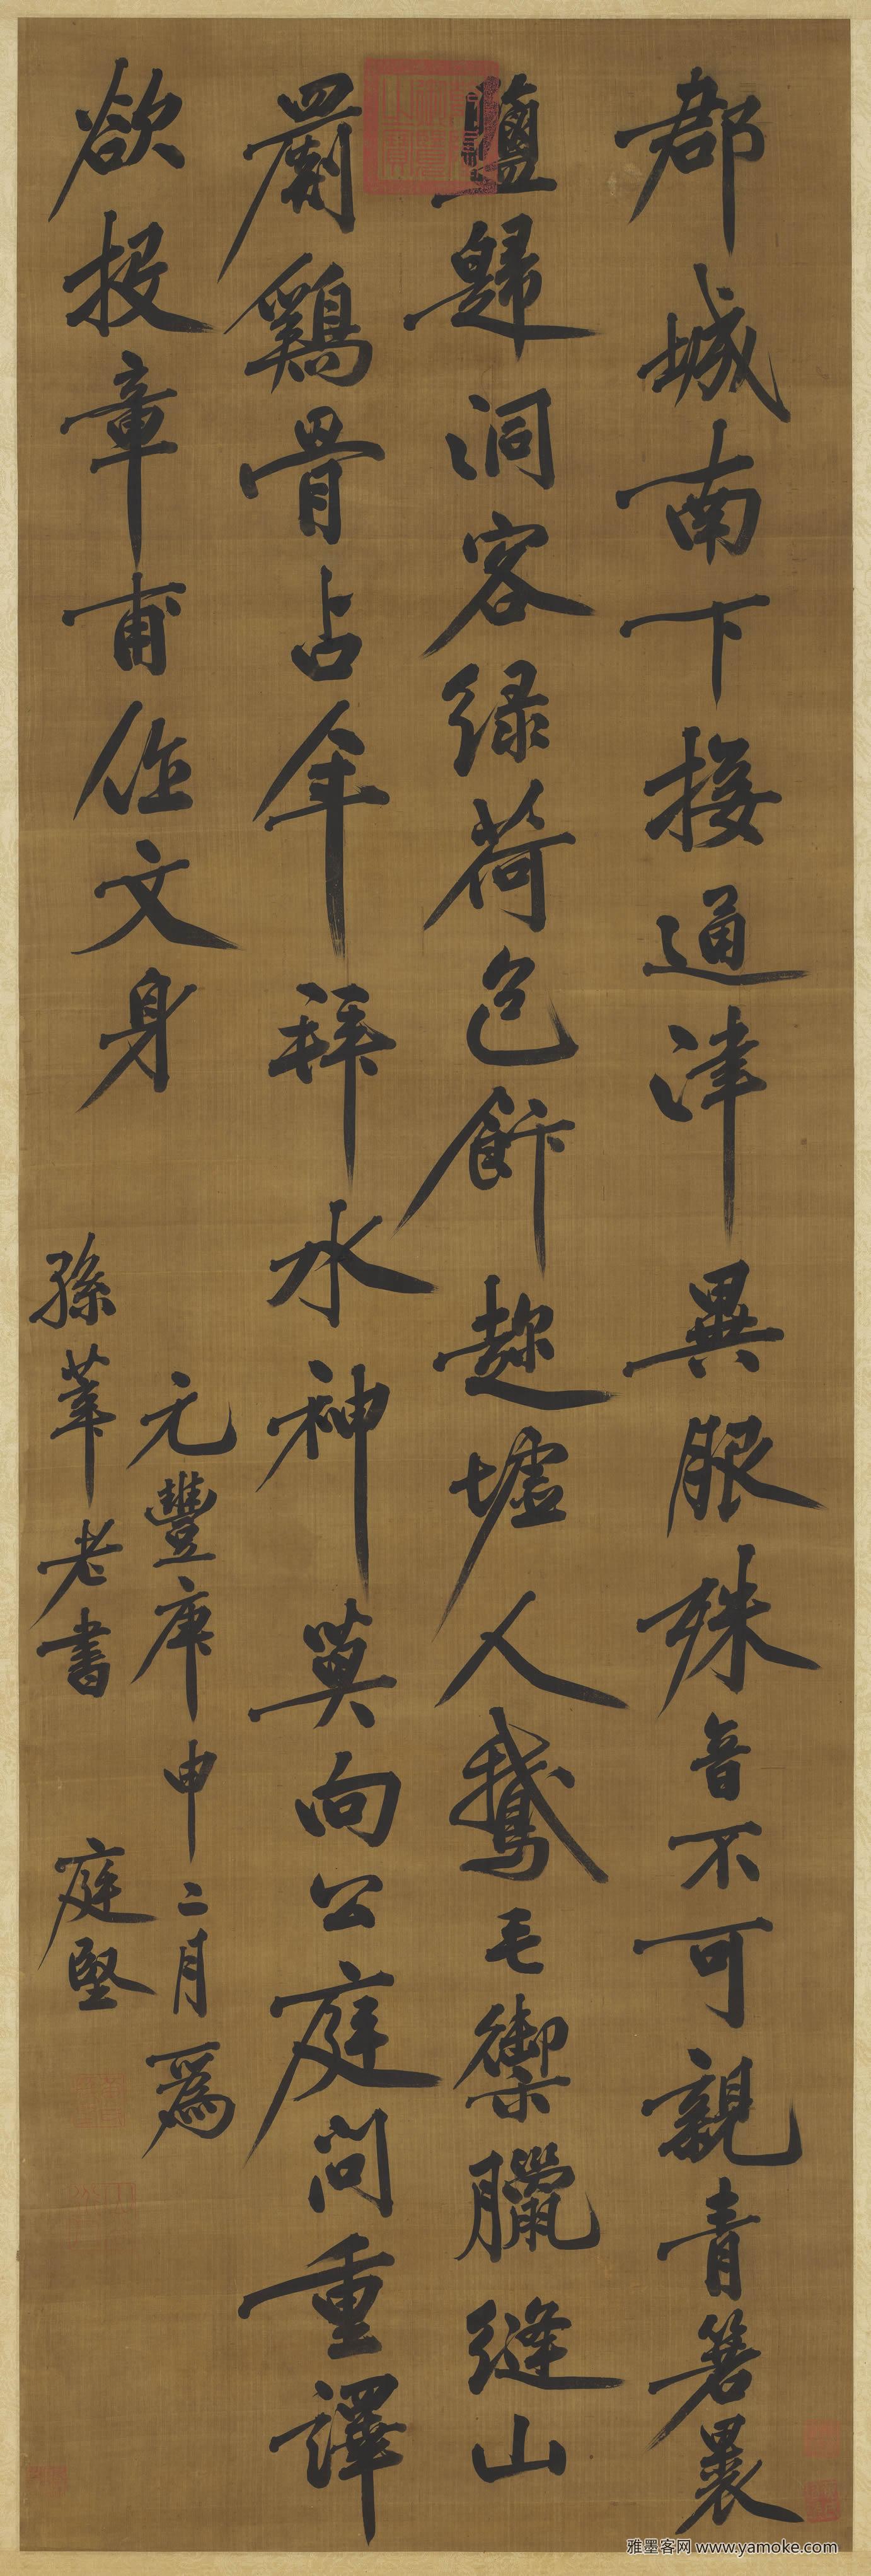 郡城南下接通津異服殊音不可親青箬裹
鹽歸洞客綠荷包飰趂墟人鵝毛御臘縫山
罽鷄骨占年拜水神莫向公庭問重譯
欲投章甫作文身
元豐庚申二月為
孫莘老書 庭堅
雅墨客网 www.yamoke.com